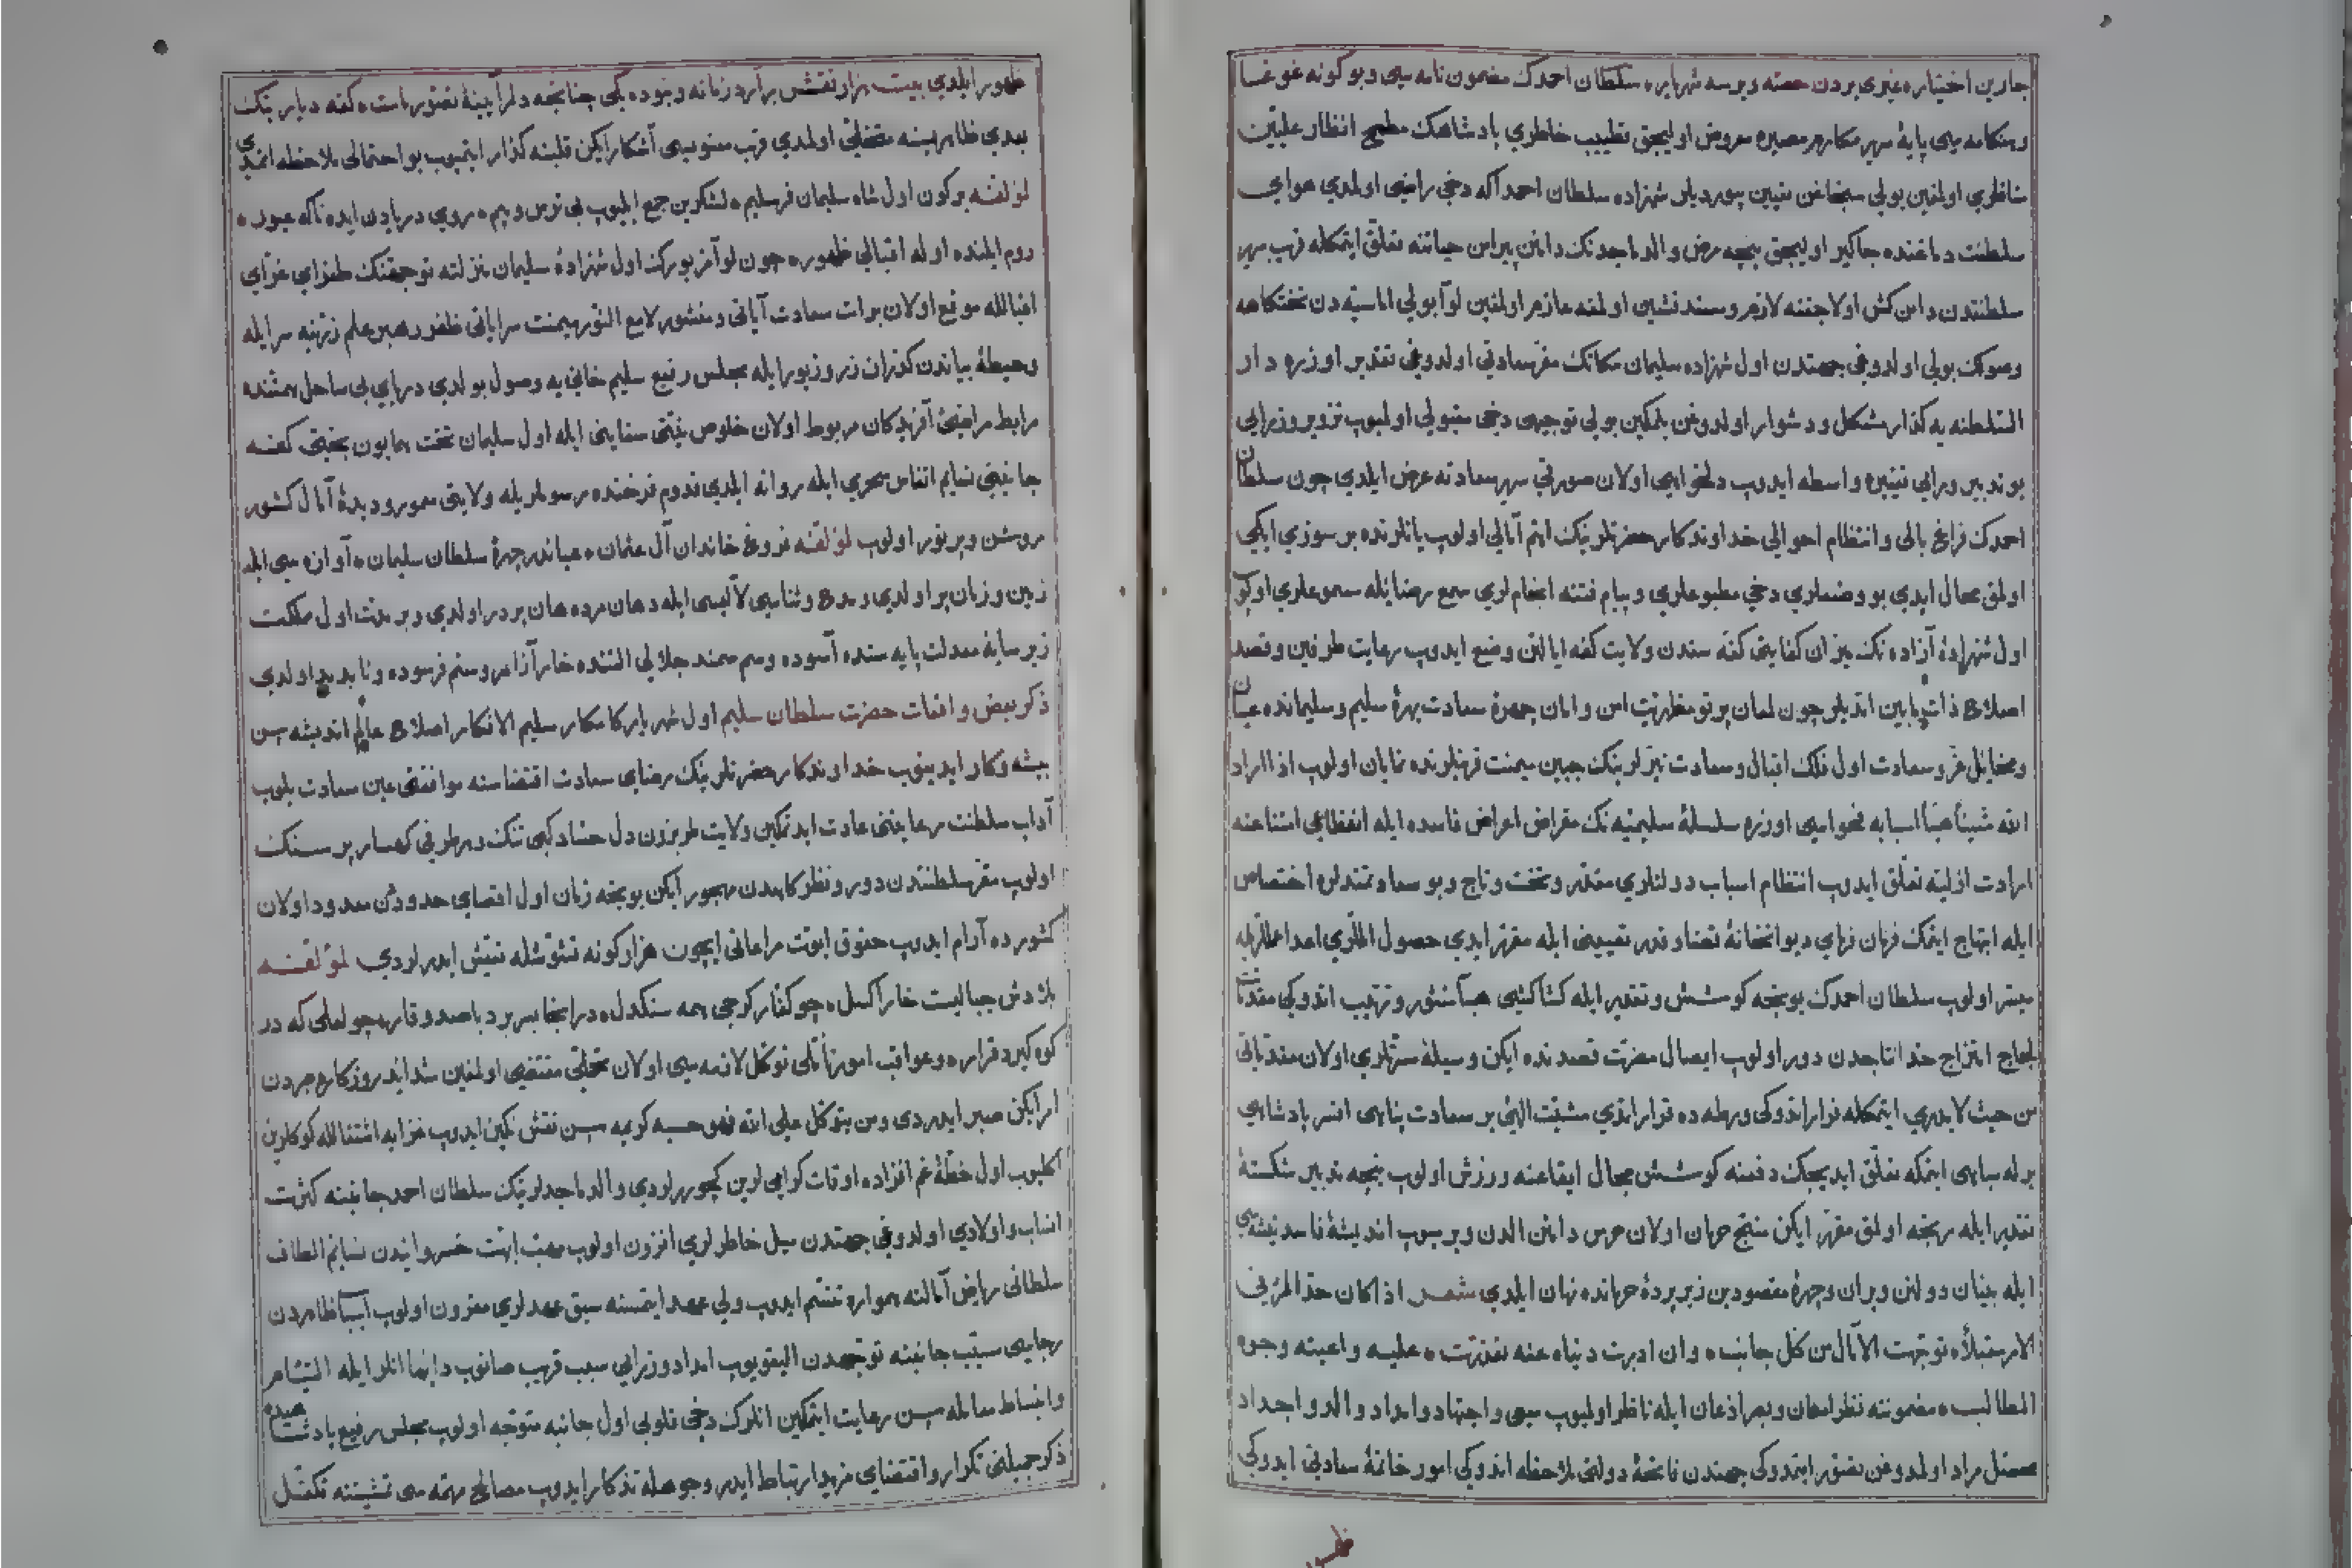 جارين اختياره غيری بردن حصته ويرسه شهرياره سلطان احمدك مضمون نامه سی وبو كونه غوغا
وهنكامه سی پايۀ سرير مكارم مصيره معروض اوليجق تطييب خاطری پادشاهك مطمح انظار عليتی
اولمغين بولی سنجاغن تعيين بيورديلر شهزاده سلطان احمد اكه دخی راضی اولمدی هوای
سلطنت دماغنده جاكير اوليجق نيجه مرض والد ماجدنك دامن پيراهن حياتنه تعلق ايتمكله قرب سرير
سلطنتدن دامن كش اولاجغنه لازم ومسند نشين اولمغه عازم اولمغين لوآ بولی اماسيه دن تختكاهه
وصولك يولی اولدوغی جهتدن اول شهزاده سليمان مكانك مقر سعادتی اولدوغی تقدير اوزره دار
السلطنه يه كذار مشكل ودشوار اولدوغن بلمكين بولی توجيهی دخی مقبولی اولميوب تزوير وزرايی
بو تدبير ورای تغييره واسطه ايدوب دلخواهی اولان صورتی سرير سعادته عرض ايلدی چون سلطان
احمدك فراغ بالی وانتظام احوالی خداوندكار حضرتلرينك اهم آمالی اولوب يانلرنده بر سوزی ايكی
اولمق محال ايدی بو وضعلری دخی مطبوعلری وپيام فتنه انجاملری سمع رضايله مسموعلری اولوب
اول شهزادۀ آزاده نك ميزان كفايتی كفه سندن ولايت كفه ايالتن وضع ايدوب رعايت طرفين وقصد
اصلاح ذات بابين اتديلر چون لمعان پرتو مظهريت امن وامان چهرۀ سعادت بهرۀ سليم وسليمانده عيان
ومخايل عز وسعادت اول فلك اقبال وسعادت نيرلرينك جبين ميمنت قرينلرنده نمايان اولوب اذا اراد
الله شيئا هيأ اسبابه فحواسی اوزره سلسلۀ سليميه نك مقراض اعراض فاسده ايله انقطاعی امتناعنه
ارادت ازليه تعلق ايدوب انتظام اسباب دولتلری مقدر وتخت وتاج وبو سعادتمندلره اختصاص
ايله ابتهاج ايتمك فرمان فرمای ديوانخانۀ قضا وقدر تعيينی ايله مقرر ايدی حصول امللری اعدا عمللريله
ميسر اولوب سلطان احمدك بو نيجه كوشش وتقدير ايله كشاكشی هبآ منثور وترتيب اتدوكی مقدمات
لجاج امتزاج خدا انتاجدن دور اولوب ايصال مضرت قصدنده ايكن وسيلۀ مسرتلری اولان مقدماتی
من حيث لا يدری ايتمكله قرار اتدوكی ورطه ده قرار ايتدی مشيت الهی بر سعادت پناهی افسر پادشاهی
برله مباهی ايتمكه تعلق ايديجك دفعنه كوشش مجال ايقاعنه ورزش اولوب نيجه تدبير شكستۀ
تقدير ايله رنجه اولمق مقرر ايكن منتج حرمان اولان حرص دامنن الدن ويرميوب انديشۀ فاسد نيشه سی
ايله بنيان دولتن ويران وچهرۀ مقصودين زير پردۀ حرمانده نهان ايلدی شعر اذا كان هذا المرء فی
الامر مقبلا ه توجهت الآمال من كل جانب ه وان ادبرت دنياه عنه تعذرت ه عليه واعيته وجوه
المطالب ه مضموننه نظر امعان وبصر اذعان ايله ناظر اولميوب سعی واجتهاد وامداد والد واجداد
محصل مراد اولمدوغن تصور ايتمدوكی جهتدن فاتحۀ دولتی ملاحظه اتدوكی امور خاتمۀ سعادتی ايدوكی
ظهور
ظهور ايلدی بيت هزار نقش برآرد زمانه ونبود يكی چنانچه در آيينۀ تصور ماست ه كفه ديارينك
بعدی ظاهر بينه مقتضی اولمدی قرب معنويسی آشكار ايكن قلبنه كذار ايتميوب بو احتمالی ملاحظه اتمدی
لمؤلفه بر كون اول شاه سليمان فر سليم ه لشكرين جمع ايليوب بی ترس وبيم ه روی دريادن ايده ناكه عبور ه
روم ايلنده اوله اقبالی ظهوره چون لوآمز بو ركه اول شهزادۀ سليمان منزلته توجهنك طغرای غرای
اقبالله موقع اولان برات سعادت آياتی ومنشور لامع النور ميمنت سراياتی ظفر رهبر علم زرينه سر ايله
وحيطۀ بياندن كذران زر وزيور ايله مجلس رفيع سليم خانی يه وصول بولدی دريای بی ساحل همتنده
مرابط مراضئ آفريدكان مربوط اولان خلوص نيتی سفاينی ايله اول سليمان تخت همايون بختی كفه
جانبنی نسايم انفاس سحری ايله روانه ايلدی قدوم فرخنده رسوملريله ولايتی معمور وديدۀ آمال كشور
روشن وپر نور اولوب لمؤلفه فروغ خاندان آل عثمان ه عياندر چهرۀ سلطان سليمان ه آوازه سی ايله
زمين وزمان پر اولدی ومدح وثناسی لآليسی ايله دهان مرده هان پر در اولدی وبر مدت اول مملكت
زير سايۀ معدلت پايه سنده آسوده وسم سمند جلالی التنده خار آزار وستم فرسوده ونابديد اولدی
ذكر بعض واقعات حضرت سلطان سليم اول شهريار كامكار سليم الافكار اصلاح عالم انديشه سن
پيشه وكار ايدينوب خداوندكار حضرتلرينك رضای سعادت اقتضاسنه موافقتی عين سعادت بلوب
آداب سلطنت رعايتنی عادت ايدنمكين ولايت طربزون دل حساد كبی تنك وهر طرفی كهسار پر سنك
اولوب مقر سلطنتدن دور ونظركاهدن مهجور ايكن بو نيجه زمان اول اقصای حدوددن معدود اولان
كشورده آرام ايدوب حقوق ابوت مراعاتی ايچون هزار كونه تشوشله تعيش ايدرلردی لمؤلفه
بلادش جباليست خارا كسل ه چو كفار كرجی همه سنكدل ه در انجا بسر برد باصد وقار ه چو لعلی كه در
كوه كيرد قرار ه وعواقب اموره تأملی توكل لازمه سی اولان تحملی مقتضی اولمغين شدايد روزكار هجردن
امر ايكن صبر ايدردی ومن يتوكل علی الله فهو حسبه كريمه سن نقش نكين ايدوب غزايه اشتغالله كوكلرين
اكليوب اول خطۀ غم افزاده اوقات كرامیلرين كچورلردی والد ماجدلرينك سلطان احمد جانبنه كثرت
انساب واولادی اولدوغی جهتدن ميل خاطرلری افزون اولوب مهب ابهت خسروانيدن نسايم الطاف
سلطانی رياض آمالنه همواره تنسم ايدوب ولی عهد ايتمسنه سبق عهدلری مقرون اولوب اسباب ظاهردن
رجاسی مسبب جانبنه توجهدن اليقويوب امداد وزرايی سبب قريب صانوب دايما انلر ايله التيام
وانبساط معامله سن رعايت ايتمكين انلرك دخی قلوبی اول جانبه متوجه اولوب مجلس رفيع پادشاهيده
ذكر جميلنی تكرار واقتضای مزيد ارتباط ايدر وجوهله تذكار ايدوب مصالح مهمه سی تمشيتنه تكفل